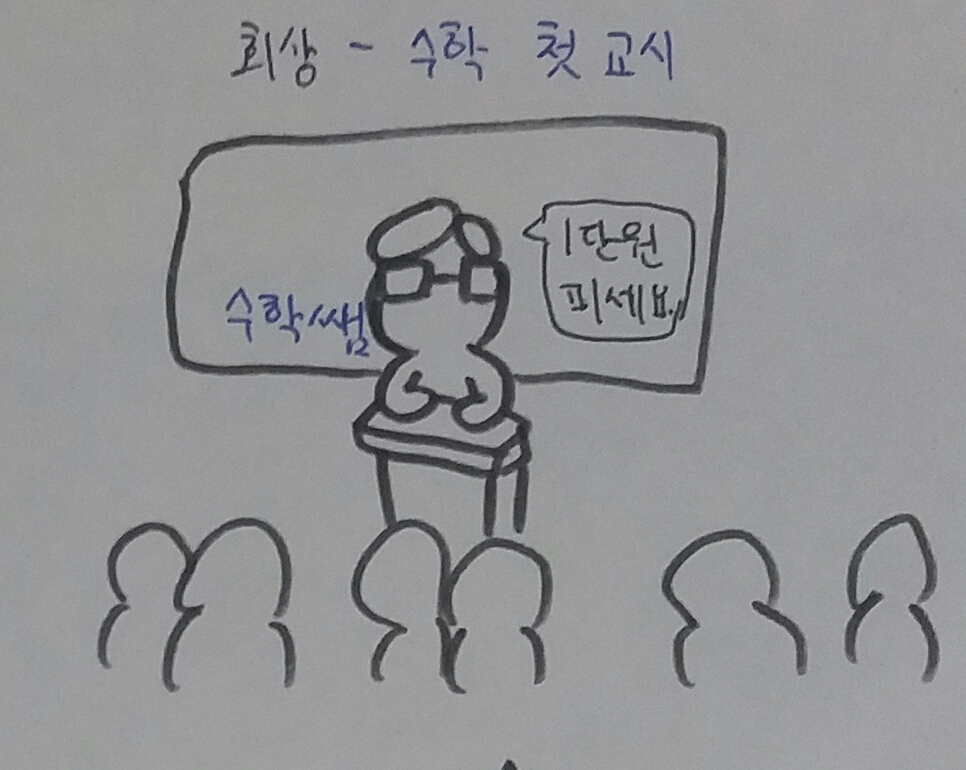 회상 - 수학 첫 교시
1단원
피세요.
수학쌤